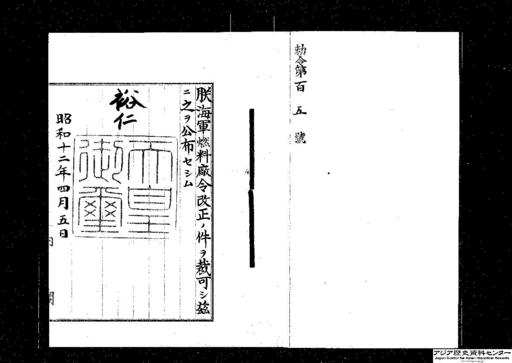 勅令第百五號
朕海軍燃料廠令改正ノ件ヲ裁可シ茲
ニ之ヲ公布セシム
裕仁
天皇
御璽
昭和十二年四月五日
アジア歴史資料センター
Japan Center for Asian Historical Records